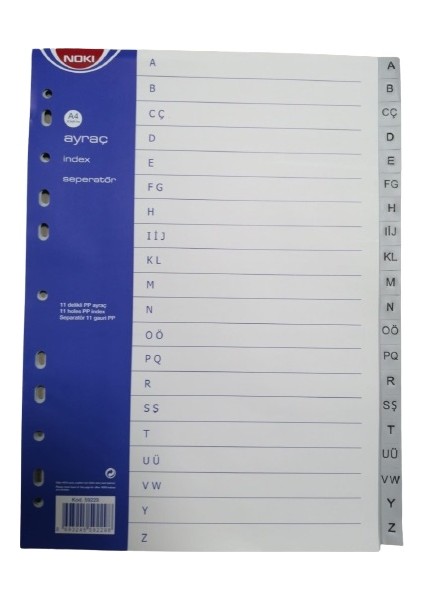 NOKI
A4
ayraç
index
seperatör
11 delikli PP ayraç
11 holes PP index
Separatör 11 gauri PP
A
B
C Ç
D
E
F G
H
I İ J
K L
M
N
O Ö
P Q
R
S Ş
T
U Ü
V W
Y
Z
A
B
CÇ
D
E
FG
H
IİJ
KL
M
N
OÖ
PQ
R
SŞ
T
UÜ
VW
Y
Z